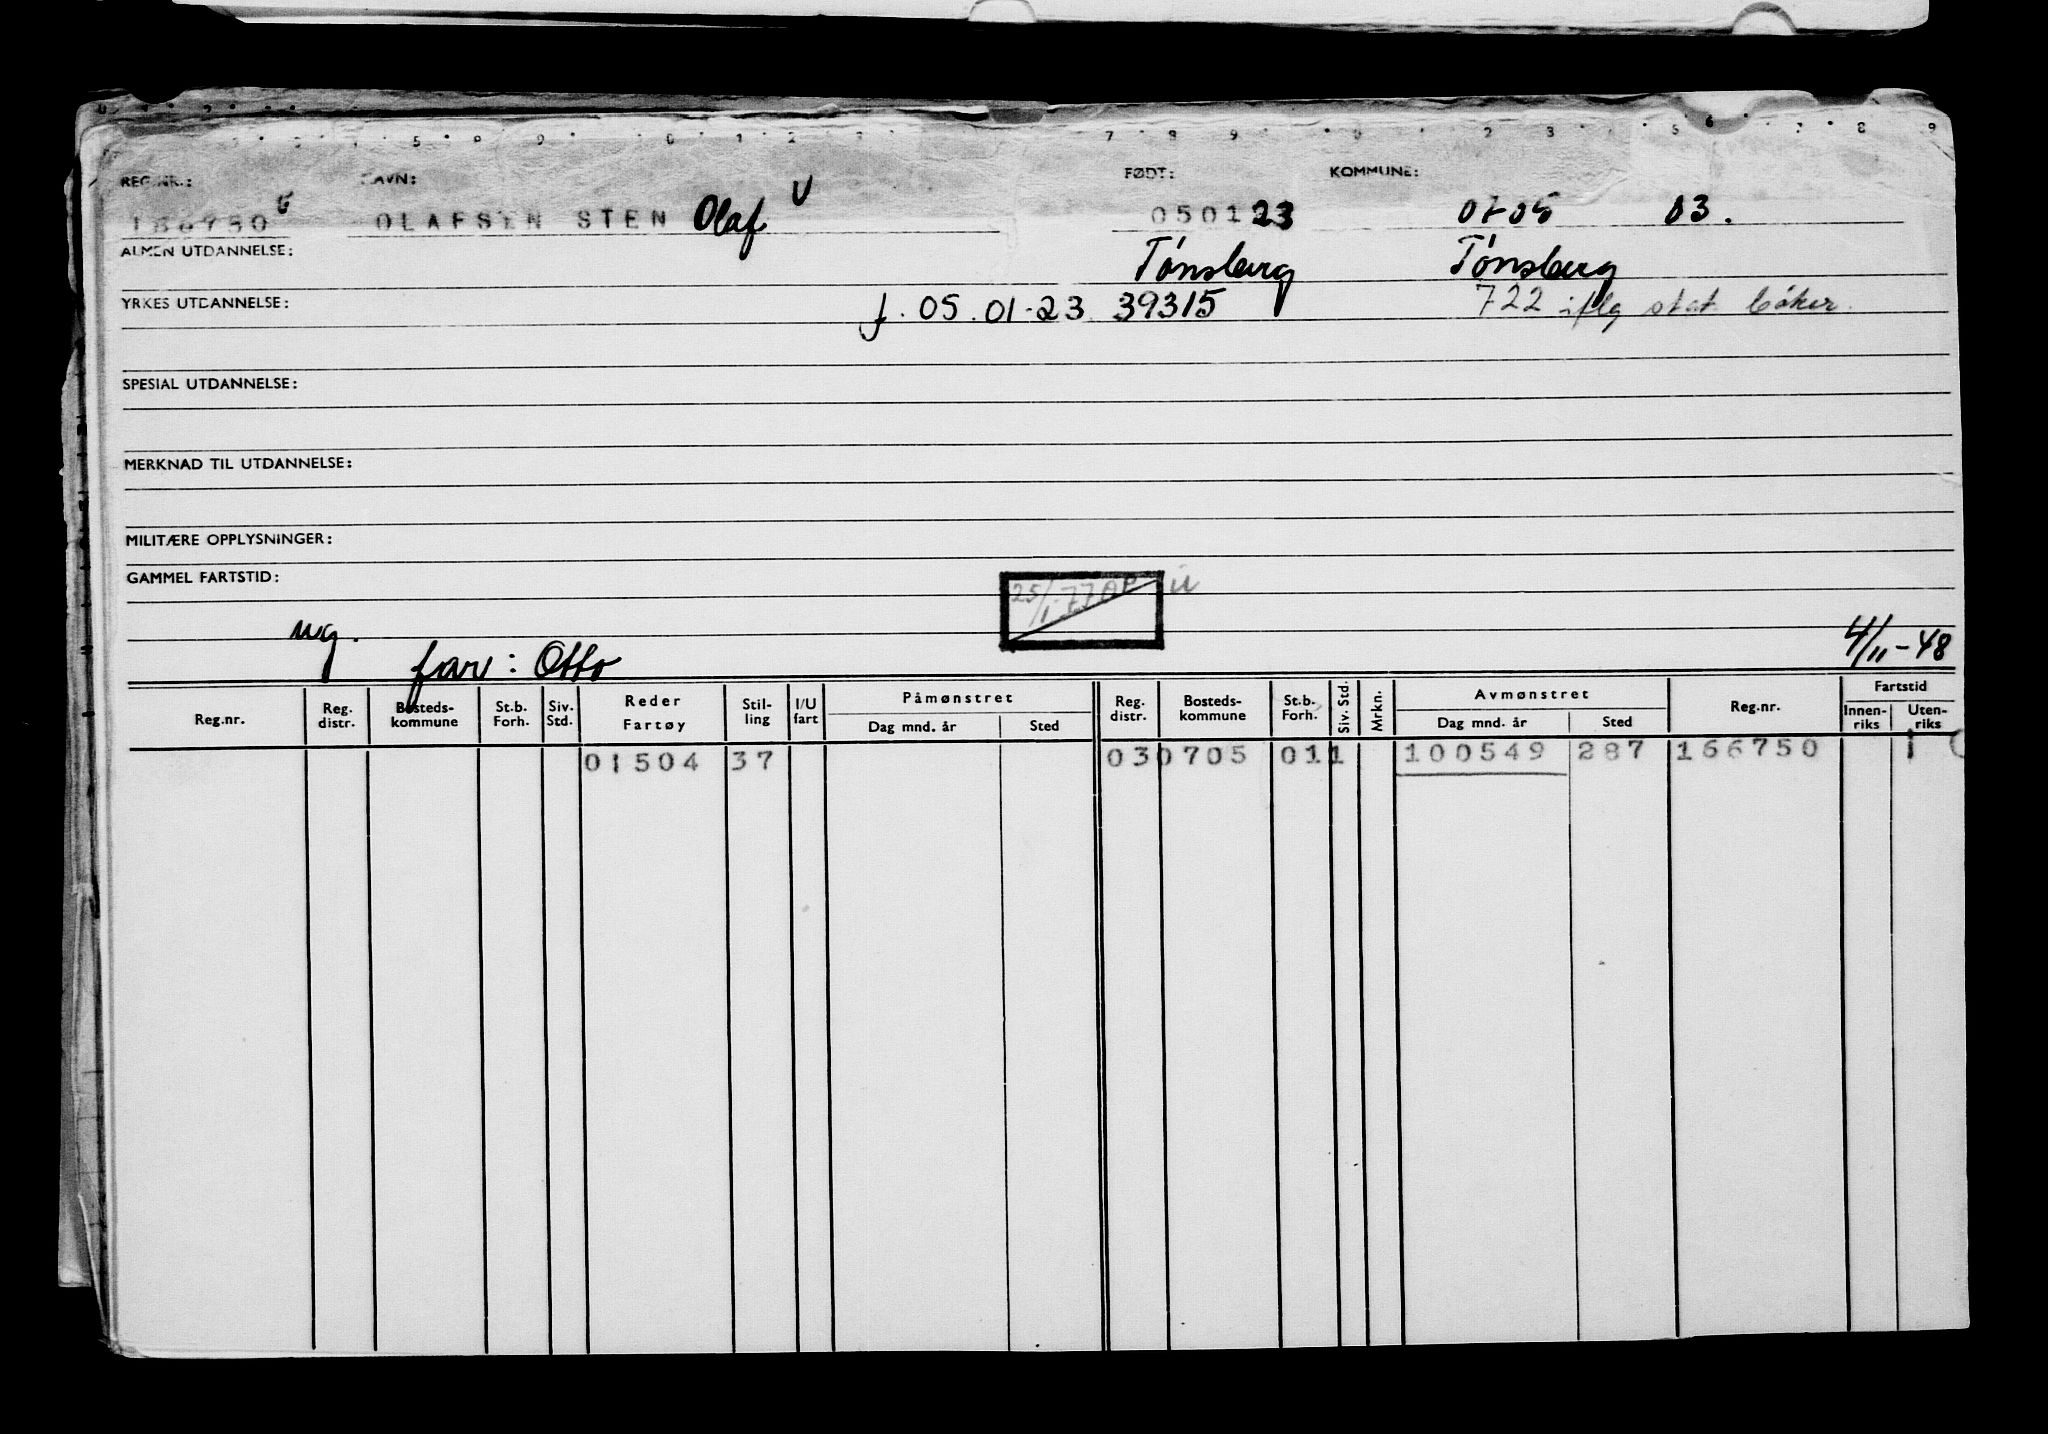 REG.NR.: NAVN: FØDT: KOMMUNE:
166750 OLAFSEN STEN Olaf 050123 0705 03.
ALMEN UTDANNELSE: Tönsberg Tönsberg
YRKES UTDANNELSE: f. 05.01-23 39315 722 iflg stat bøker.
SPESIAL UTDANNELSE:
MERKNAD TIL UTDANNELSE:
MILITÆRE OPPLYSNINGER:
GAMMEL FARTSTID:
25/1-77
ug. 4/11-48
far: Otto
Reg.nr. Reg. distr. Bosteds-kommune St.b. Forh. Siv. Std. Reder Fartøy Stil-ling I/U fart Påmønstret Dag mnd. år Sted Reg. distr. Bosteds-kommune St.b. Forh. Siv. Std. Mrkn. Avmønstret Dag mnd. år Sted Reg.nr. Fartstid Innen-riks Uten-riks
01504 37 03 0705 01 1 100549 287 166750 1